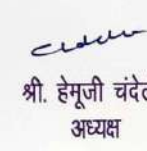 श्री. हेमूजी चंदेल
अध्यक्ष